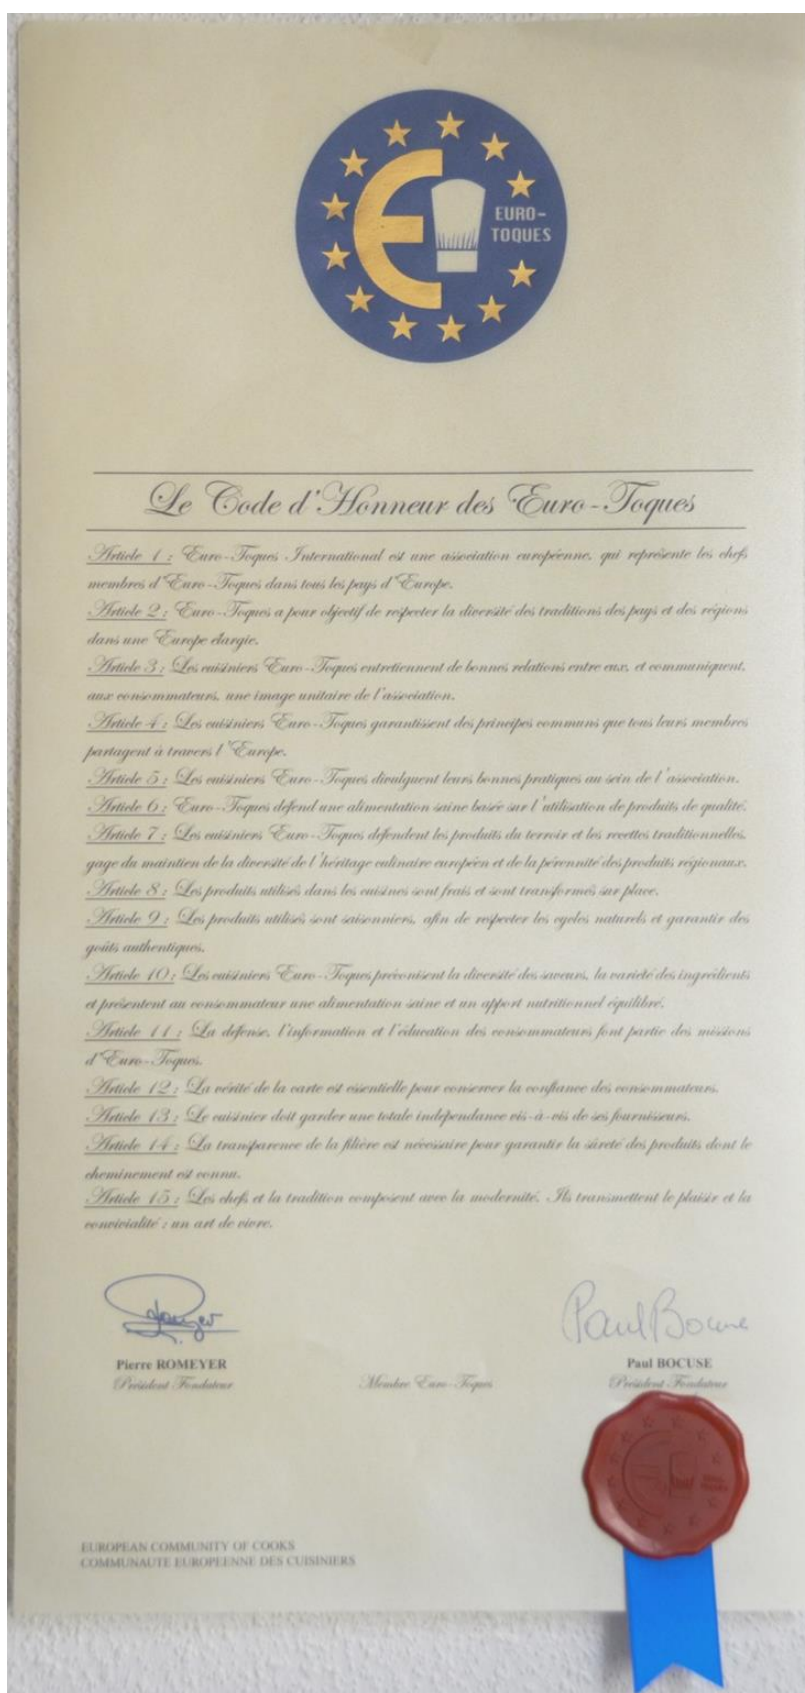 EURO-
TOQUES
Le Code d'Honneur des Euro-Toques
Article 1 : Euro-Toques International est une association européenne, qui représente les chefs
membres d'Euro-Toques dans tous les pays d'Europe.
Article 2 : Euro-Toques a pour objectif de respecter la diversité des traditions des pays et des régions
dans une Europe élargie.
Article 3 : Les cuisiniers Euro-Toques entretiennent de bonnes relations entre eux, et communiquent,
aux consommateurs, une image unitaire de l'association.
Article 4 : Les cuisiniers Euro-Toques garantissent des principes communs que tous leurs membres
partagent à travers l'Europe.
Article 5 : Les cuisiniers Euro-Toques divulguent leurs bonnes pratiques au sein de l'association.
Article 6 : Euro-Toques défend une alimentation saine basée sur l'utilisation de produits de qualité.
Article 7 : Les cuisiniers Euro-Toques défendent les produits du terroir et les recettes traditionnelles,
gage du maintien de la diversité de l'héritage culinaire européen et de la pérennité des produits régionaux.
Article 8 : Les produits utilisés dans les cuisines sont frais et sont transformés sur place.
Article 9 : Les produits utilisés sont saisonniers, afin de respecter les cycles naturels et garantir des
goûts authentiques.
Article 10 : Les cuisiniers Euro-Toques préconisent la diversité des saveurs, la variété des ingrédients
et présentent au consommateur une alimentation saine et un apport nutritionnel équilibré.
Article 11 : La défense, l'information et l'éducation des consommateurs font partie des missions
d'Euro-Toques.
Article 12 : La vérité de la carte est essentielle pour conserver la confiance des consommateurs.
Article 13 : Le cuisinier doit garder une totale indépendance vis-à-vis de ses fournisseurs.
Article 14 : La transparence de la filière est nécessaire pour garantir la sûreté des produits dont le
cheminement est connu.
Article 15 : Les chefs et la tradition composent avec la modernité. Ils transmettent le plaisir et la
convivialité : un art de vivre.
Romeyer
Paul Bocuse
Pierre ROMEYER
Président Fondateur
Membre Euro-Toques
Paul BOCUSE
Président Fondateur
EURO-
TOQUES
EUROPEAN COMMUNITY OF COOKS
COMMUNAUTE EUROPEENNE DES CUISINIERS